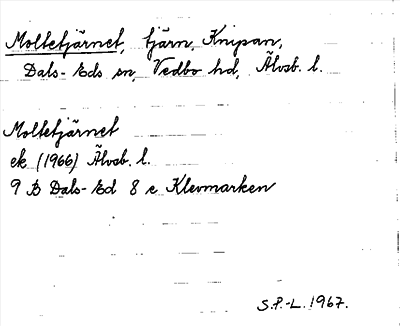 Moltetjärnet, tjärn, Knipan,
Dals-Eds sn, Vedbo hd, Älvsb. l.
Moltetjärnet
ek (1966) Älvsb. l.
9 B Dals-Ed 8 e Klevmarken
S.P.-L. 1967.